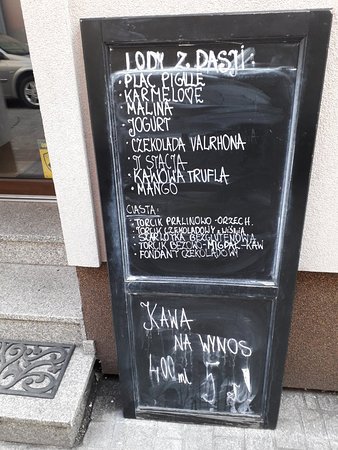 LODY Z PASJI:
• PLAC PIGLLE
• KARMELOVE
• MALINA
• JOGURT
• CZEKOLADA VALRHONA
• KAWOWA TRUFLA
• MANGO
CIASTA:
• TORCIK PRALINOWO-ORZECH.
• TORCIK CZEKOLADOWY Z WIŚNIĄ
• SZARLOTKA BEZGLUTENOWA
• TORCIK BEZOWO-MIGDAŁ-KAW
• FONDANY CZEKOLADOWY
KAWA
NA WYNOS
400 ml 5